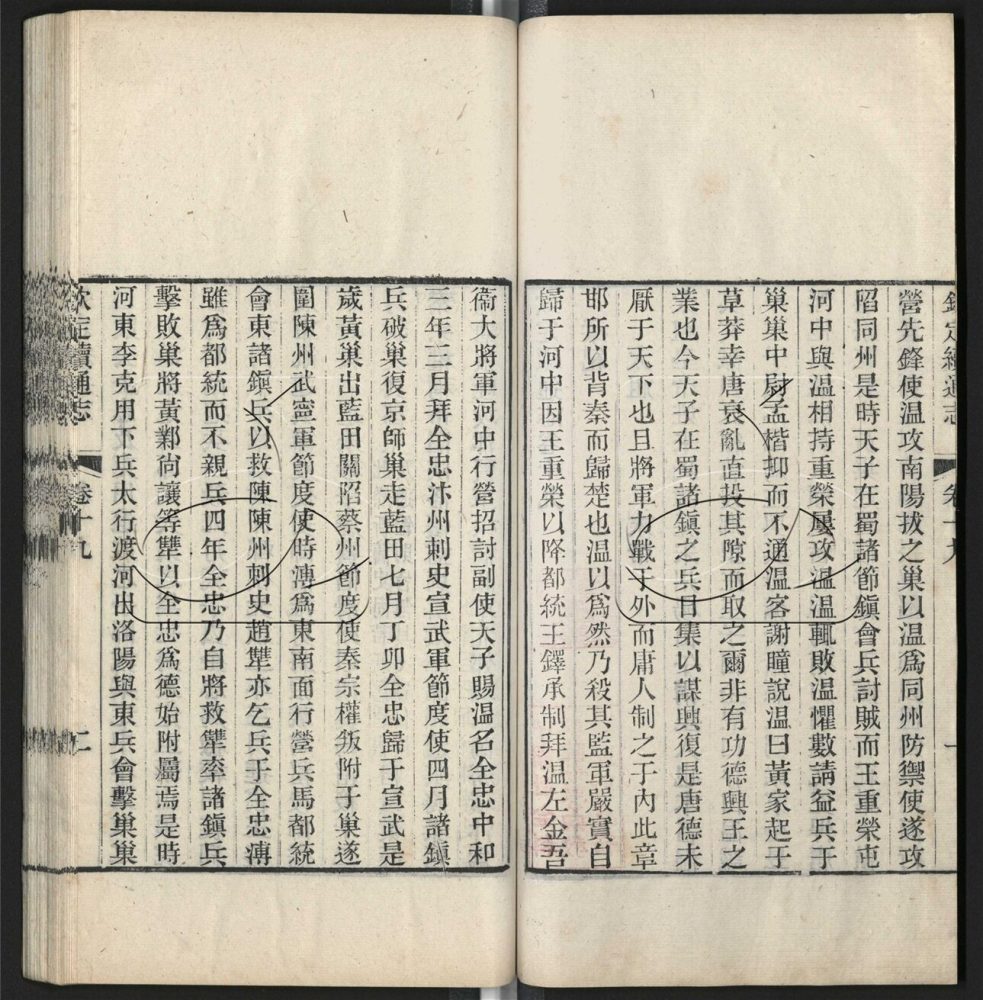 欽定續通志 卷十九 一
營先鋒使温攻南陽拔之巢以温爲同州防禦使遂攻
陷同州是時天子在蜀諸節鎭會兵討賊而王重榮屯
河中與温相持重榮屢攻温温輒敗温懼數請益兵于
巢巢中尉孟楷抑而不通温客謝瞳說温曰黃家起于
草莽幸唐衰亂直投其隙而取之爾非有功德興王之
業也今天子在蜀諸鎭之兵日集以謀興復是唐德未
厭于天下也且將軍力戰于外而庸人制之于內此章
邯所以背秦而歸楚也温以爲然乃殺其監軍嚴實自
歸于河中因王重榮以降都統王鐸承制拜温左金吾
衞大將軍河中行營招討副使天子賜温名全忠中和
三年三月拜全忠汴州刺史宣武軍節度使四月諸鎭
兵破巢復京師巢走藍田七月丁卯全忠歸于宣武是
歲黃巢出藍田關陷蔡州節度使秦宗權叛附于巢遂
圍陳州武寧軍節度使時溥爲東南面行營兵馬都統
會東諸鎭兵以救陳陳州刺史趙犨亦乞兵于全忠溥
雖爲都統而不親兵四年全忠乃自將救犨率諸鎭兵
擊敗巢將黃鄴尙讓等犨以全忠爲德始附屬焉是時
河東李克用下兵太行渡河出洛陽與東兵會擊巢巢
欽定續通志 卷十九 二